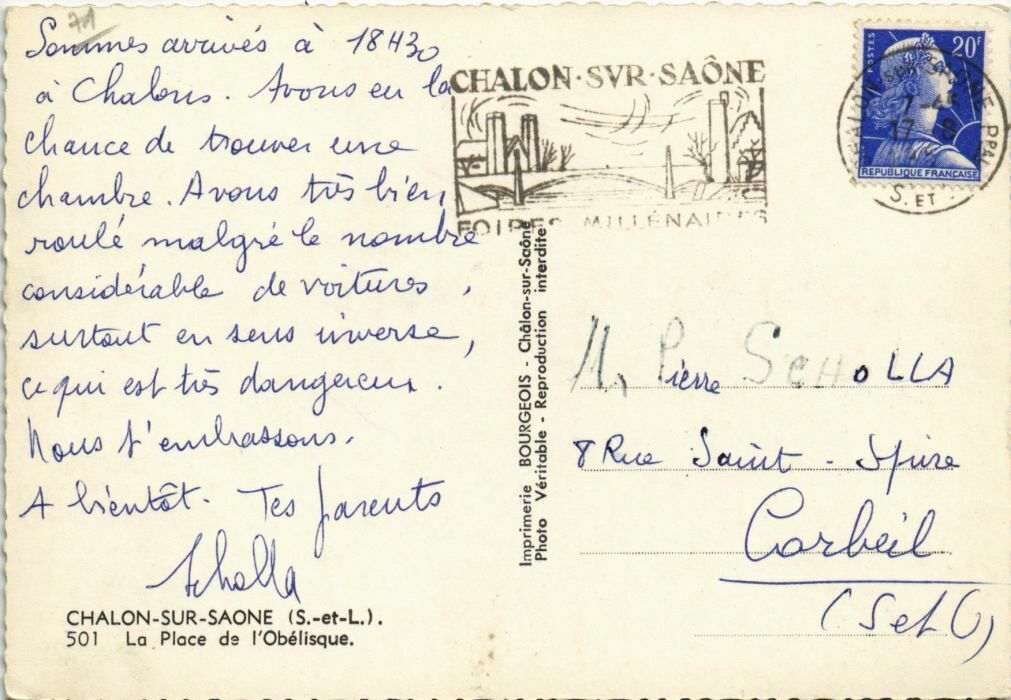 71
Sommes arrivés à 18H30
à Chalons. Avons eu la
chance de trouver une
chambre. Avons très bien
roulé malgré le nombre
considérable de voitures,
surtout en sens inverse,
ce qui est très dangereux.
Nous t'embrassons.
A bientôt. Tes parents
Scholla
CHALON-SUR-SAONE (S.-et-L.).
501 La Place de l'Obélisque.
CHALON·SVR·SAÔNE
FOIRES MILLÉNAIRES
Imprimerie BOURGEOIS - Châlon-sur-Saône
Photo Véritable - Reproduction interdite
POSTES
20F
REPUBLIQUE FRANÇAISE
17 9
S. ET
M. Pierre SCHOLLA
8 Rue Saint-Spire
Corbeil
(S et O)